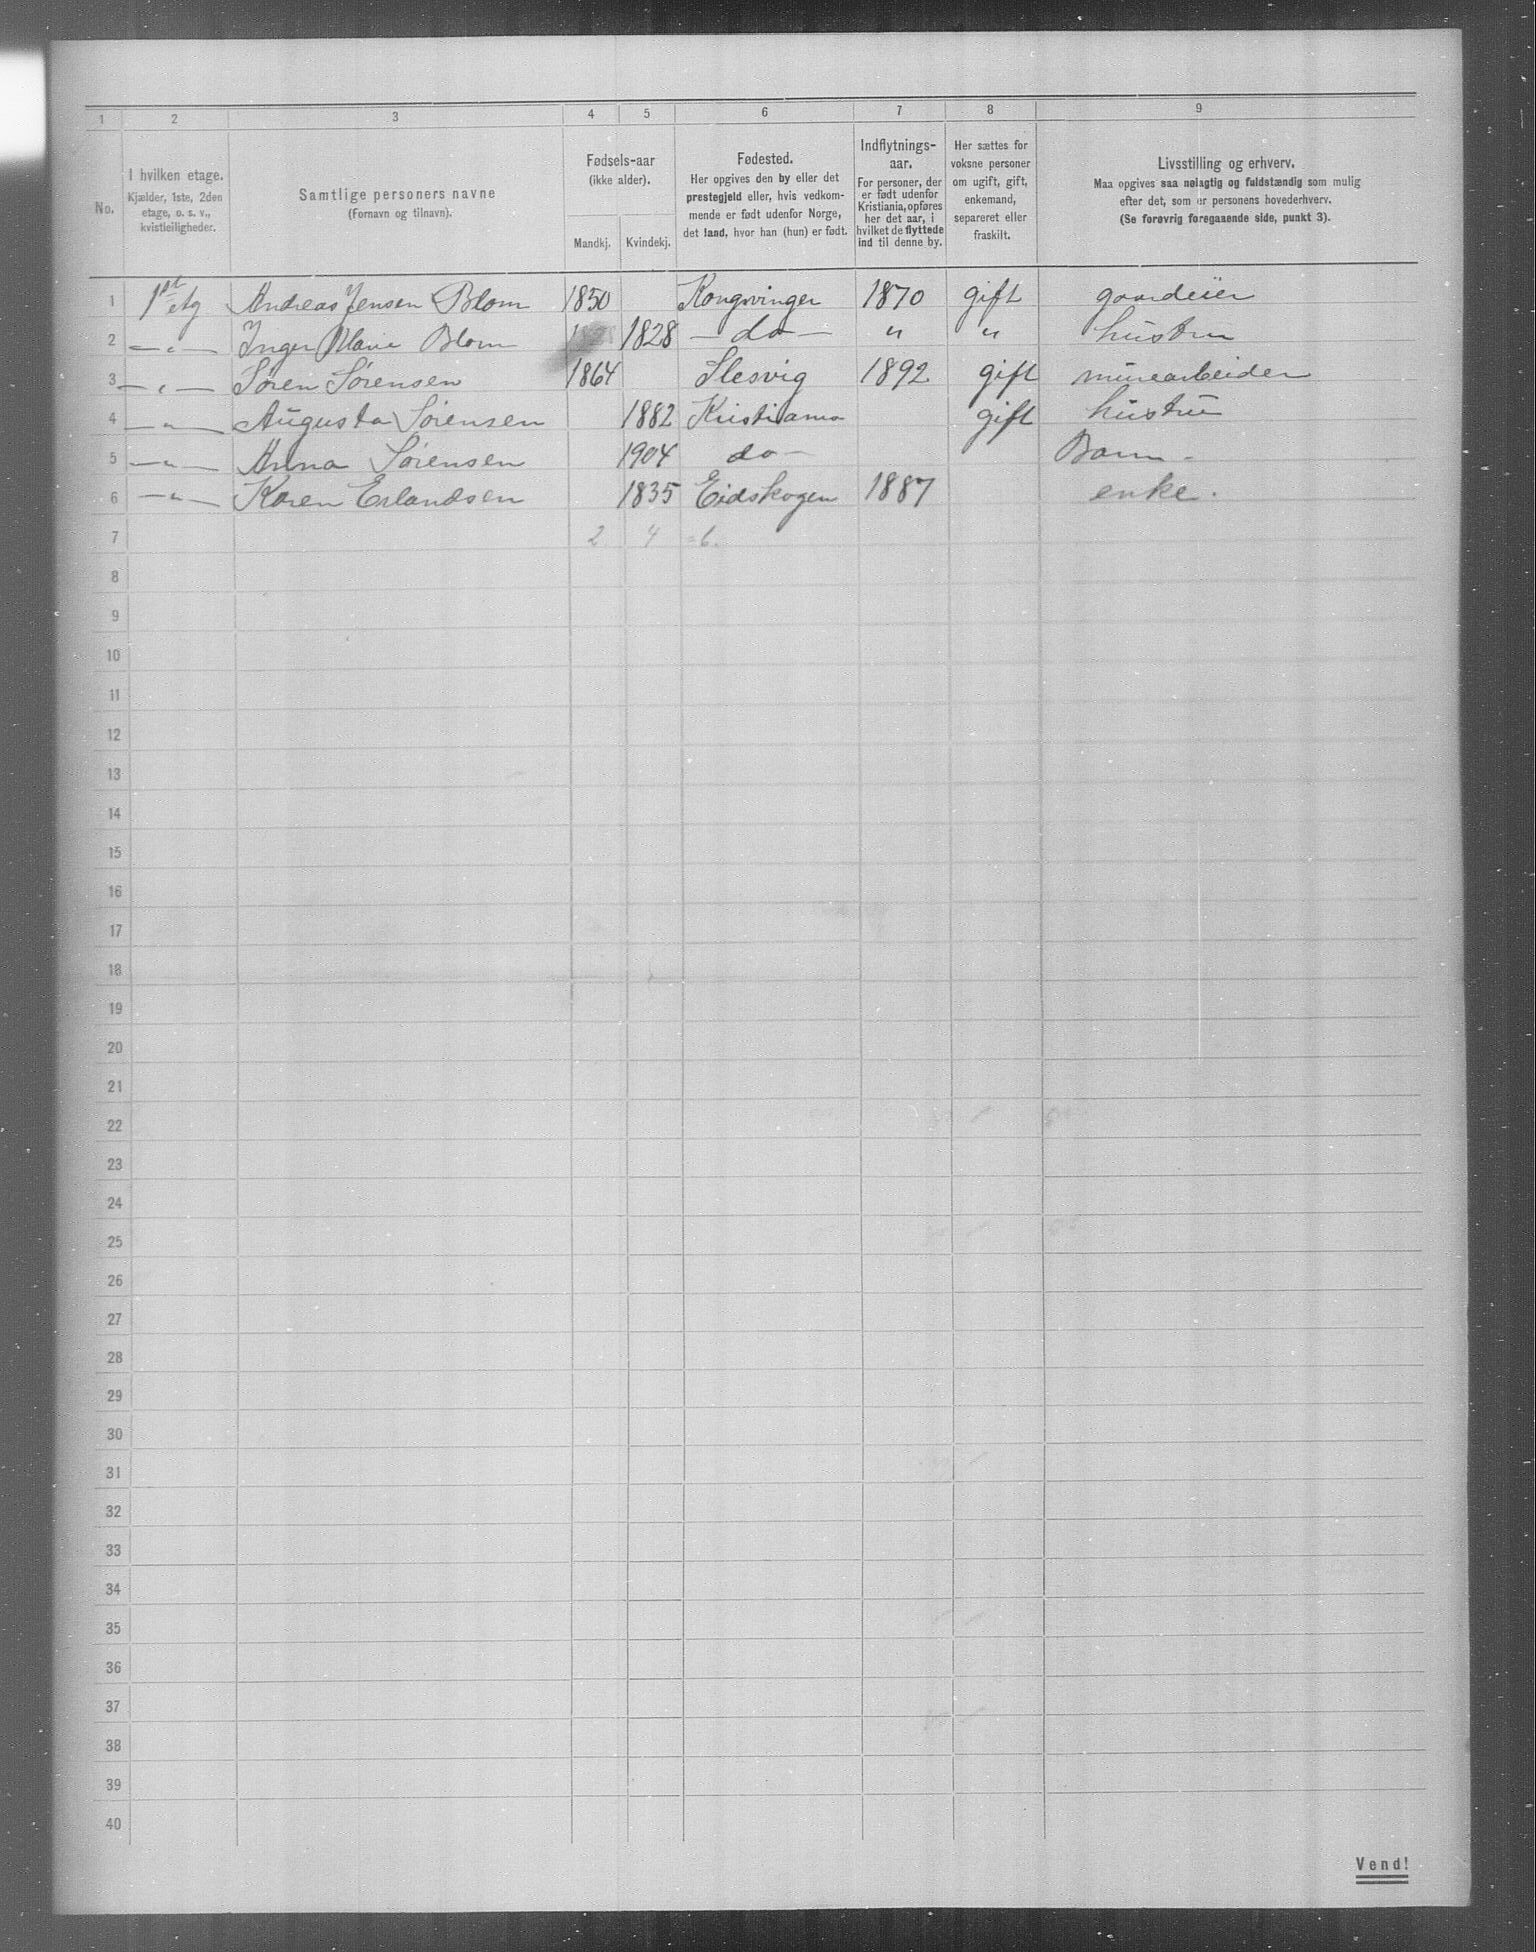 1 2 3 4 5 6 7 8 9
No.
I hvilken etage.
Kjælder, 1ste, 2den
etage, o. s. v.,
kvistleiligheder.
Samtlige personers navne
(Fornavn og tilnavn).
Fødsels-aar
(ikke alder).
Mandkj. Kvindekj.
Fødested.
Her opgives den by eller det
prestegjeld eller, hvis vedkom-
mende er født udenfor Norge,
det land, hvor han (hun) er født.
Indflytnings-
aar.
For personer, der
er født udenfor
Kristiania, opføres
her det aar, i
hvilket de flyttede
ind til denne by.
Her sættes for
voksne personer
om ugift, gift,
enkemand,
separeret eller
fraskilt.
Livsstilling og erhverv.
Maa opgives saa nøiagtig og fuldstændig som mulig
efter det, som er personens hovederhverv.
(Se forøvrig foregaaende side, punkt 3).
1 1st etg Andreas Jensen Blom 1850 Kongsvinger 1870 gift gaardeier
2 — „ — Inger Marie Blom 1828 — do — „ „ hustru
3 — „ — Søren Sørensen 1864 Slesvig 1892 gift murearbeider
4 — „ — Augusta Sørensen 1882 Kristiania gift hustru
5 — „ — Anna Sørensen 1904 do — Barn -
6 — „ — Karen Erlandsen 1835 Eidskogen 1887 enke.
7 2 4 =6.
8
9
10
11
12
13
14
15
16
17
18
19
20
21
22
23
24
25
26
27
28
29
30
31
32
33
34
35
36
37
38
39
40
Vend!